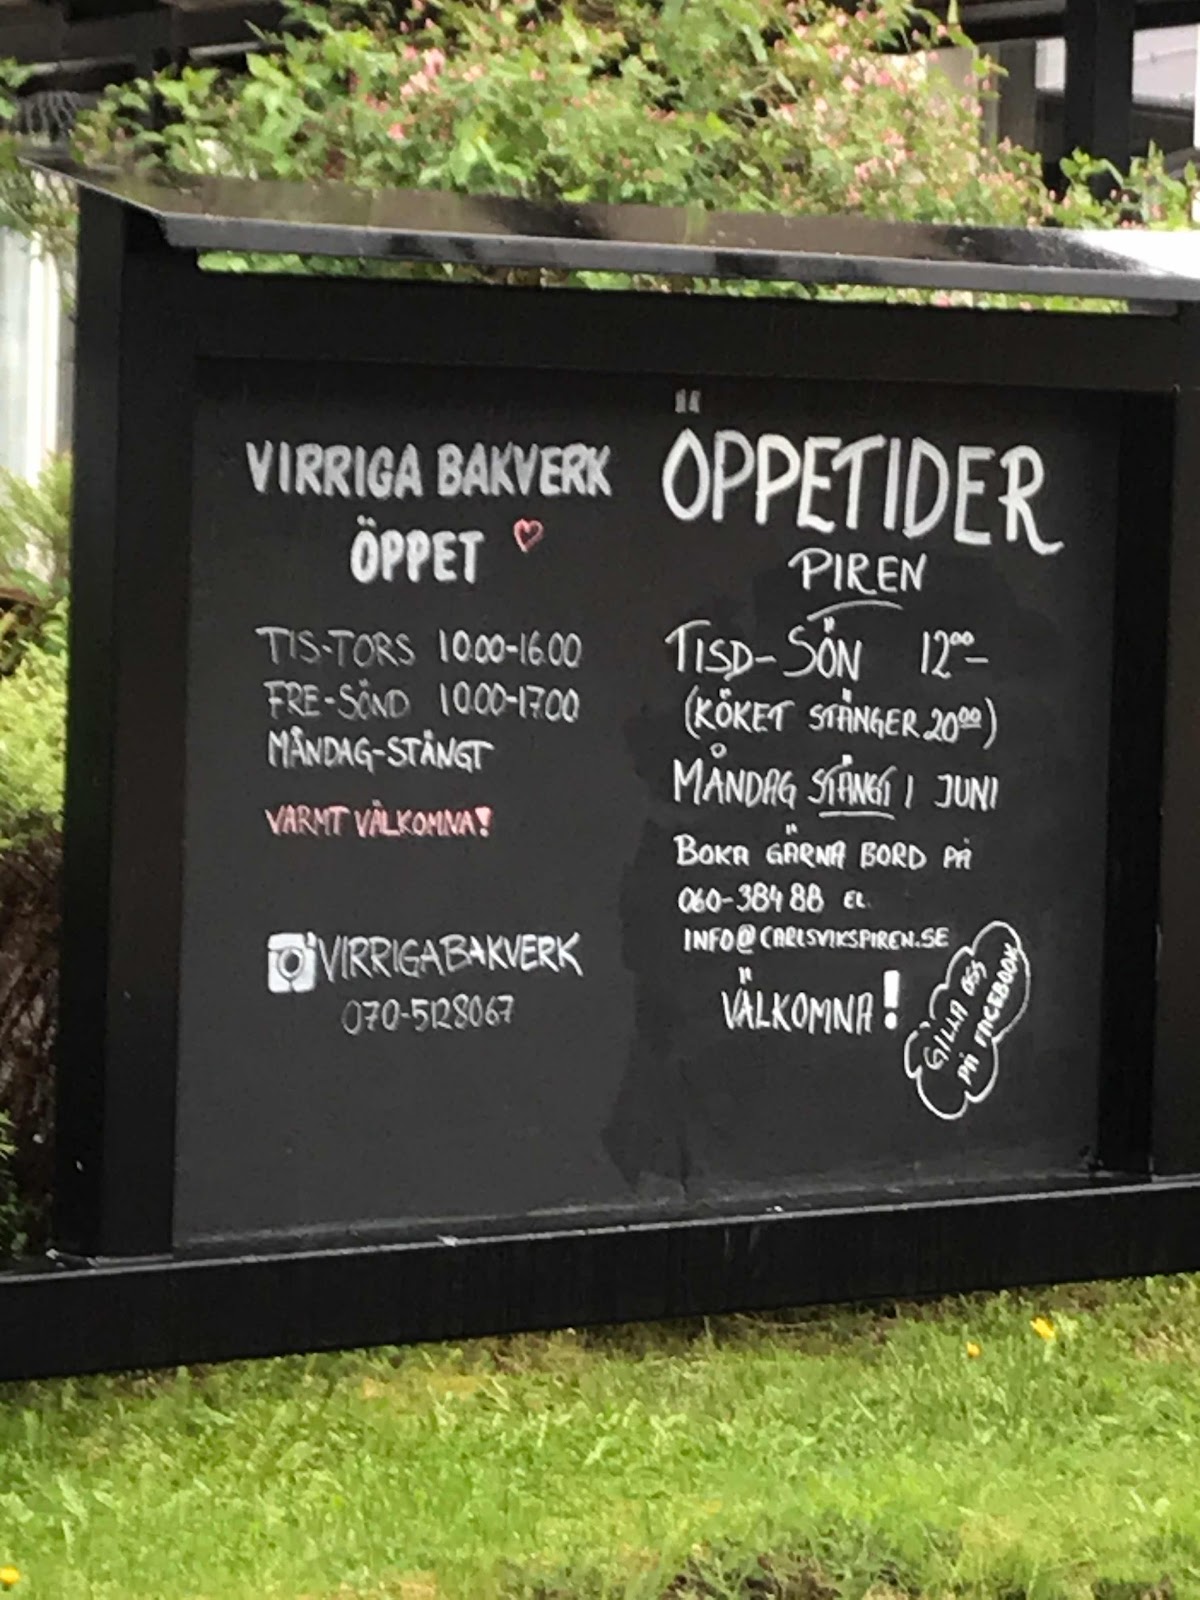 VIRRIGA BAKVERK
ÖPPET
TIS-TORS 10.00-16.00
FRE-SÖND 10.00-17.00
MÅNDAG-STÄNGT
VARMT VÄLKOMNA!
VIRRIGABAKVERK
070-5128067
ÖPPETIDER
PIREN
TISD-SÖN 12⁰⁰-
(KÖKET STÄNGER 20⁰⁰)
MÅNDAG STÄNGT I JUNI
BOKA GÄRNA BORD PÅ
060-384 88 EL.
INFO@CARLSVIKSPIREN.SE
VÄLKOMNA!
GILLA OSS
PÅ FACEBOOK